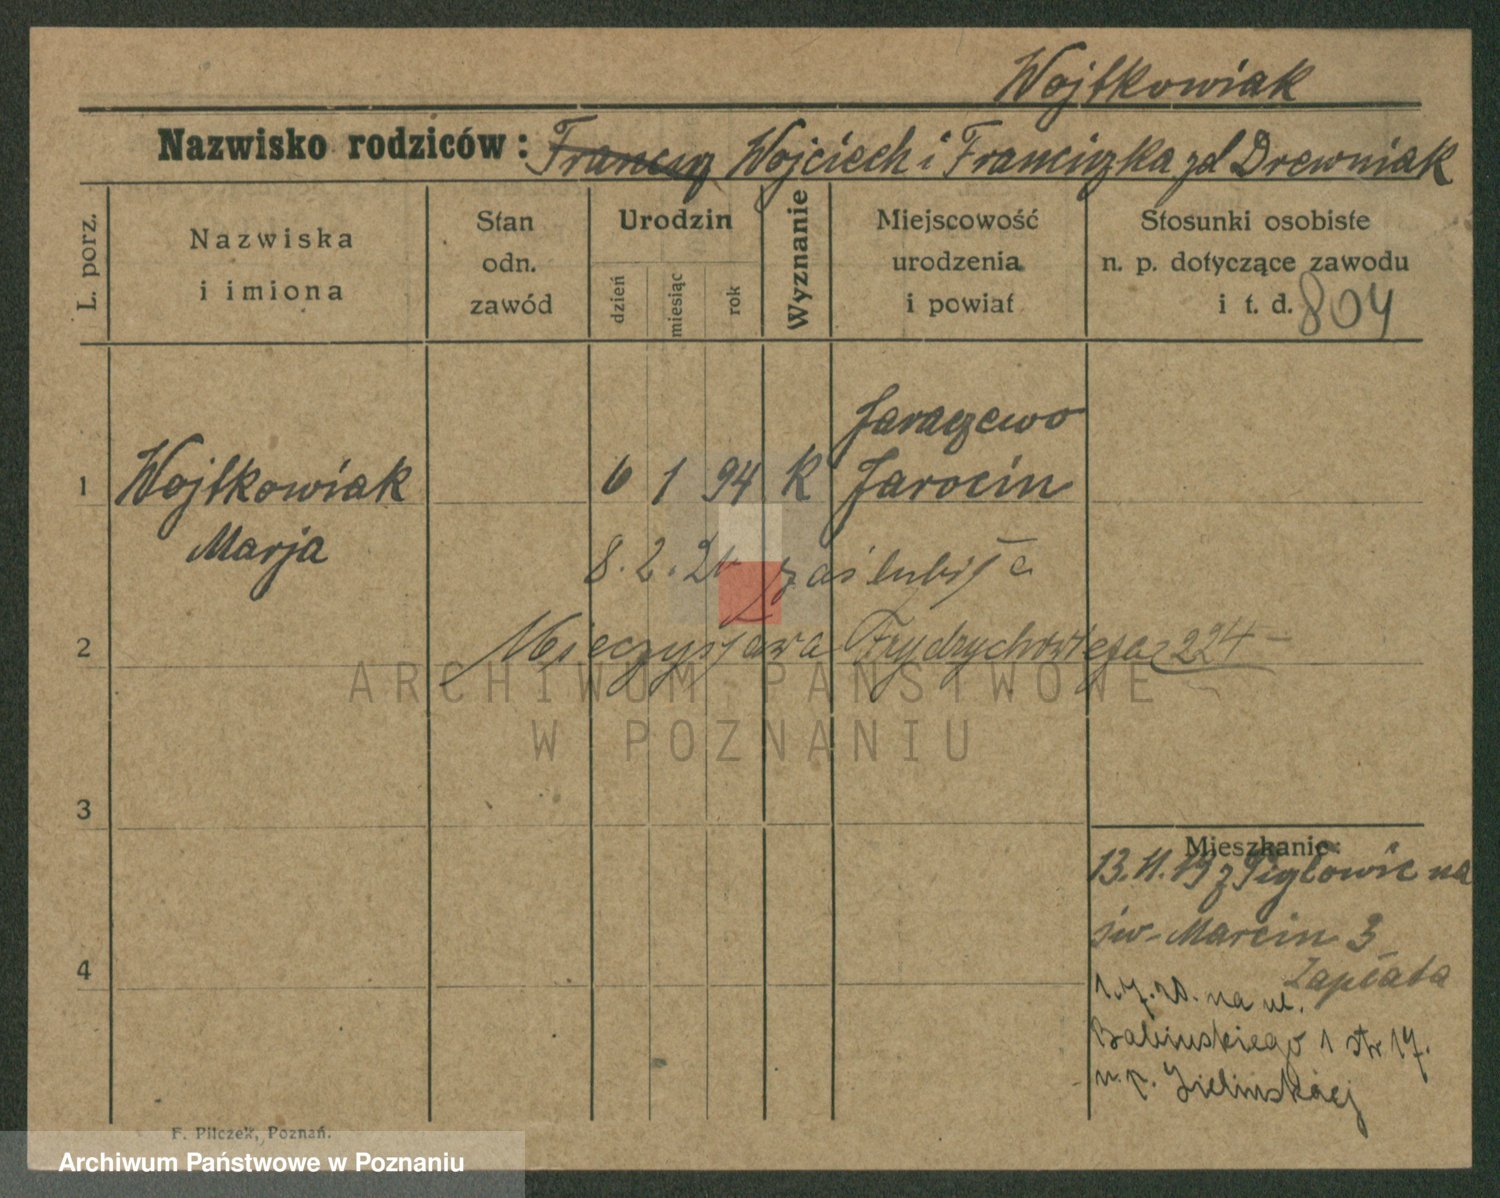 Wojtkowiak
Nazwisko rodziców: Wojciech i Franciszka zd Drewniak
L. porz.
Nazwiska
i imiona
Stan
odn.
zawód
Urodzin
dzień
miesiąc
rok
Wyznanie
Miejscowość
urodzenia
i powiat
Stosunki osobiste
n. p. dotyczące zawodu
i t. d. 804
Jaraczewo
1 Wojtkowiak 6 1 94 K Jarocin
Marja
8. 2. zaślubiła
2 Mieczysława 224
3
Mieszkanie:
13.11.19 z na
św. Marcin 3
4 Zapłata
na ul.
Babinskiego 1 str 17.
n. p. Zielinskiej
F. Pilczek, Poznań.
ARCHIWUM PAŃSTWOWE
W POZNANIU
Archiwum Państwowe w Poznaniu